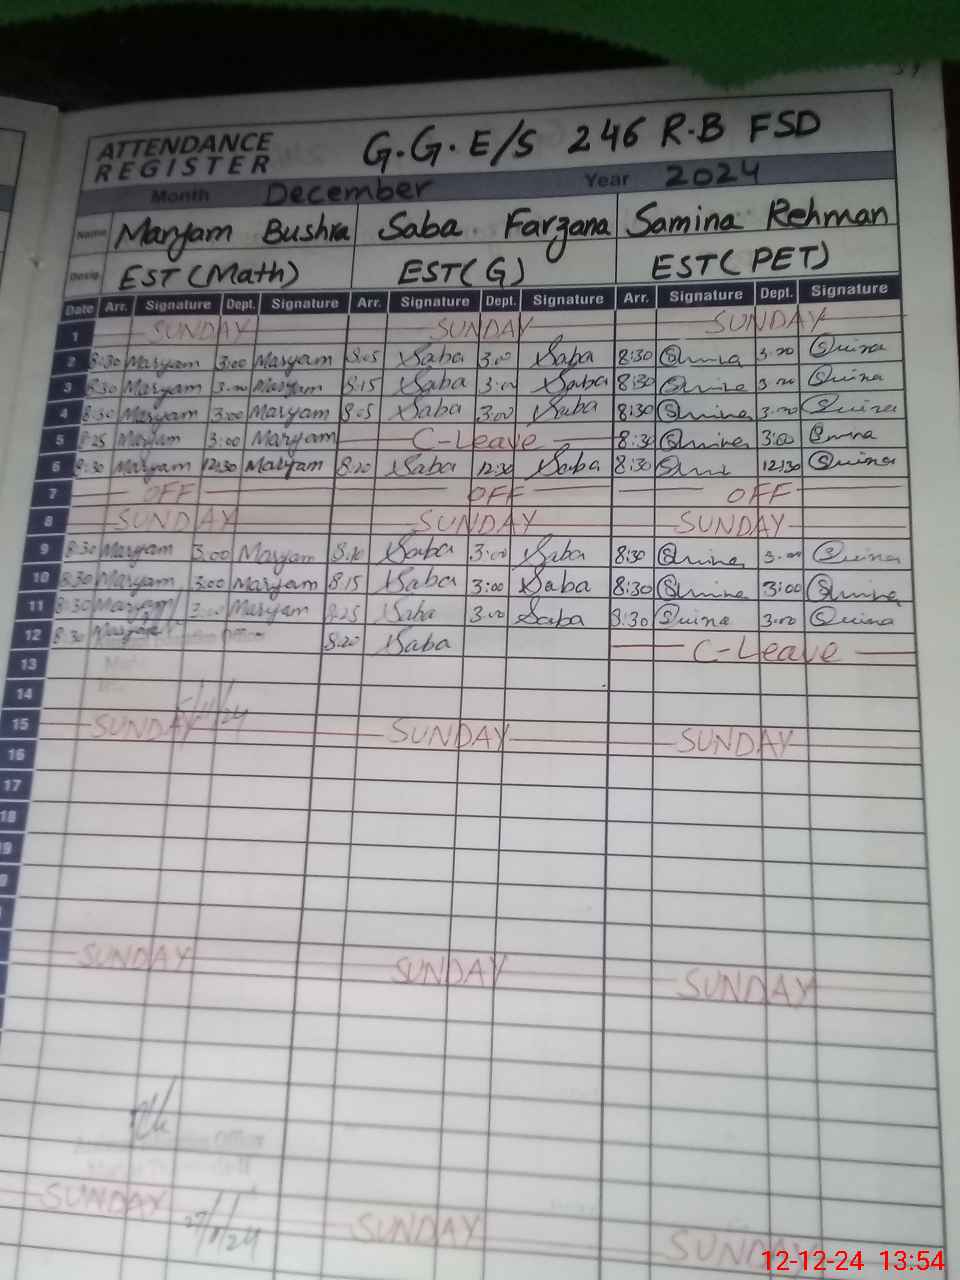 ATTENDANCE REGISTER G.G.E/S 246 R.B FSD
Month December Year 2024
Name Maryam Bushra Saba Farzana Samina Rehman
Desig. EST (Math) EST(G) EST(PET)
Date Arr. Signature Dept. Signature Arr. Signature Dept. Signature Arr. Signature Dept. Signature
1 SUNDAY SUNDAY SUNDAY
2 8:30 Maryam 3:00 Maryam Saba 3:00 Saba 8:30
3 8:30 Maryam 3:00 Maryam 8:15 Saba 3:00 Saba 8:30
4 8:30 Maryam 3:00 Maryam Saba 3:00 Saba 8:30
5 8:25 Maryam 3:00 Maryam C-Leave 8:30 3:00
6 8:30 Maryam 12:30 Maryam 8:20 Saba 12:30 Saba 8:30 12:30
7 OFF OFF OFF
8 SUNDAY SUNDAY SUNDAY
9 8:30 Maryam 3:00 Maryam 8:10 Saba 3:00 Saba 8:30
10 8:30 Maryam 3:00 Maryam 8:15 Saba 3:00 Saba 8:30 3:00
11 8:30 Maryam 3:00 Maryam 8:25 Saba 3:00 Saba 8:30 3:00
12 8:30 Maryam 8:20 Saba C-Leave
13
14
15 SUNDAY SUNDAY SUNDAY
16
17
18
SUNDAY SUNDAY SUNDAY
SUNDAY SUNDAY SUNDAY
12-12-24 13:54